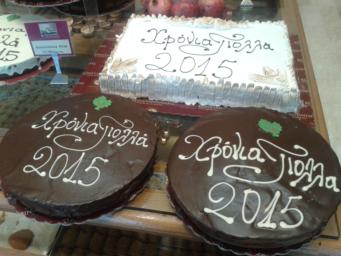 Χρόνια Πολλα
2015
Χρόνια Πολλά
2015
Χρόνια Πολλα
2015
15